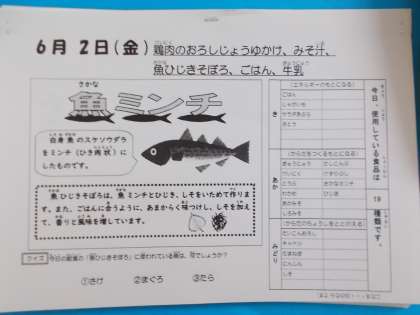 6月 2日(金) 鶏肉のおろしじょうゆかけ、みそ汁、
魚ひじきそぼろ、ごはん、牛乳
さかな
魚ミンチ
白身魚のスケソウダラ
をミンチ（ひき肉状）に
したものです。
魚ひじきそぼろは、魚ミンチとひじき、しそをいためて作りま
す。また、ごはんに合うように、あまからく味つけし、しそを加え
て、香りと風味を増しています。
クイズ 今日の給食の「魚ひじきそぼろ」に使われている魚は、何でしょうか？
①さけ ②まぐろ ③たら
今日、使用している食品は 19 種類です。
き
（エネルギーのもとになる）
ごはん
じゃがいも
サラダあぶら
さとう
あか
（からだをつくるもとになる）
ぎゅうにゅう
とうふ
わかめ
ひじき
あかみそ
しろみそ
みどり
（からだのちょうしをととのえる）
だいこんおろし
キャベツ
たまねぎ
にんじん
しそ